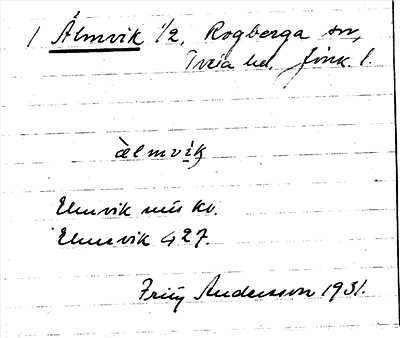 1 Älmvik 1/2, Rogberga sn,
Tveta hd, Jönk. l.
àlmvik
Elmvik mís kv.
Elmevik 427.
Fritz Andersson 1931.